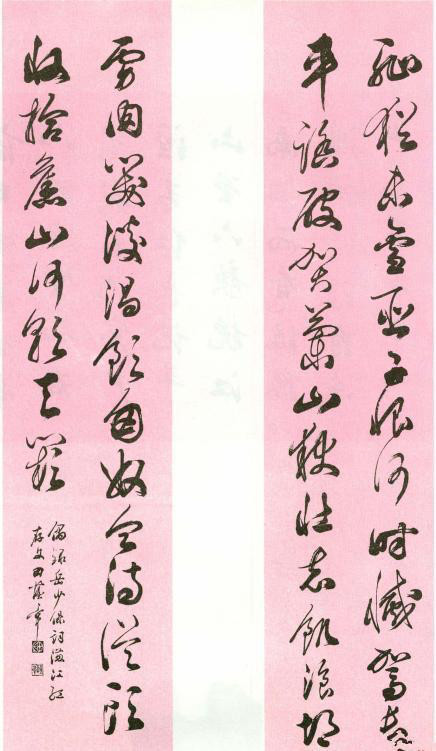 恥猶未雪臣子恨何時滅駕長
車踏破賀蘭山缺壯志飢餐胡
虜肉笑談渴飲匈奴血待從頭
收拾舊山河朝天闕
偶錄岳少保詞滿江紅
田蘊章